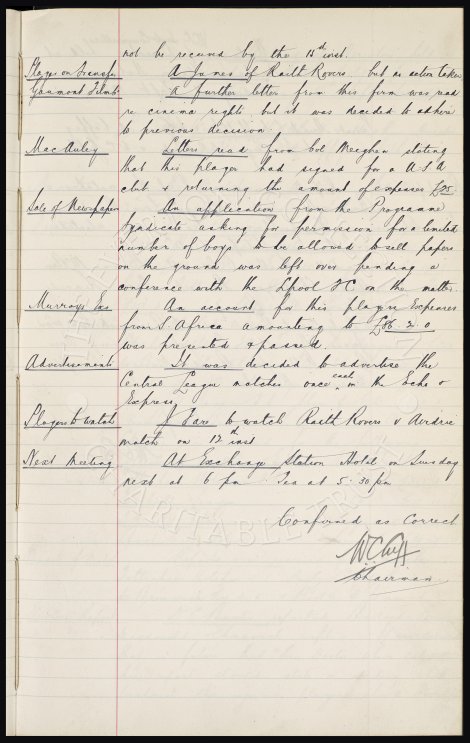 not be received by the 15th inst.
Players on Transfer A James of Raith Rovers but no action taken
Gaumont Films A further letter from this firm was read
re cinema rights but it was decided to adhere
to previous decision.
MacAuley Letters read from Col Meighan stating
that this player had signed for a USA
club & returning the amount of expenses £25
Sale of Newspapers An application from the Programme
Syndicate asking for permission for a limited
number of boys to be allowed to sell papers
on the ground was left over pending a
conference with the Lpool FC on the matter.
Murrays Exs An account for this players Expenses
from S. Africa amounting to £86. 2. 0
was presented & passed.
Advertisements It was decided to advertise the
Central League matches once each in the Echo &
Express.
Players to Watch J Fare to watch Raith Rovers v Airdrie
match on 12th inst
Next Meeting At Exchange Station Hotel on Tuesday
next at 6 pm Tea at 5.30 pm
Confirmed as Correct
W.C. Cuff
Chairman
CHARITABLE TRUST